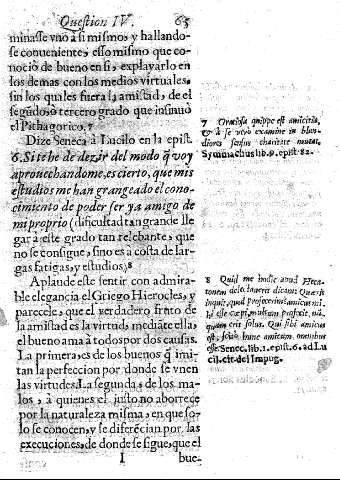 Question IV. 65
minasse vno à si mismo, y hallando-
se conueniente, esso mismo que co-
nociò de bueno en si, explayarlo en
los demas con los medios virtuales,
sin los quales fuera la amistad, de el
segũdo, o tercero grado que insinuò
el Pithagorico. 7
Dize Seneca à Lucilo en la epist.
6. Si te he de dezir del modo q̃ voy
aprouechandome, es cierto, que mis
estudios me han grangeado el cono-
cimiento de poder ser ya amigo de
mi proprio (dificultad tan grande lle
gar à este grado tan releuante, que
no se consigue, sino es a costa de lar-
gas fatigas, y estudios) 8
Aplaude este sentir con admira-
ble elegancia el Griego Hierocles, y
parecele, que el verdadero fruto de
la amistad es la virtud, mediãte ella,
el bueno ama à todos por dos causas.
La primera, es de los buenos q̃ imi-
tan la perfeccion por donde se vnen
las virtudes. La segunda, de los ma-
los, à quienes el justo no aborrece
por la naturaleza misma, en que so-
lo se conocen, y se diferẽcian por las
execuciones, de donde se sigue, que el
I bue-
7 quippe est amicitia,
& à se vero examine in blan-
diores sensus charitate mutat.
Symmachus lib. 9. epist. 82.
8 Quid me hodie apud Heca-
tonem delectauerit dicam: Quæris
inquit, quid profecerim? amicus esse mi-
hi cœpi, multum profecit, nũ-
quam erit solus. Qui sibi amicus
est, scito hunc amicum omnibus
esse. Senec. lib. 1. epist. 6. ad Lu
cil. cit. del Impug.